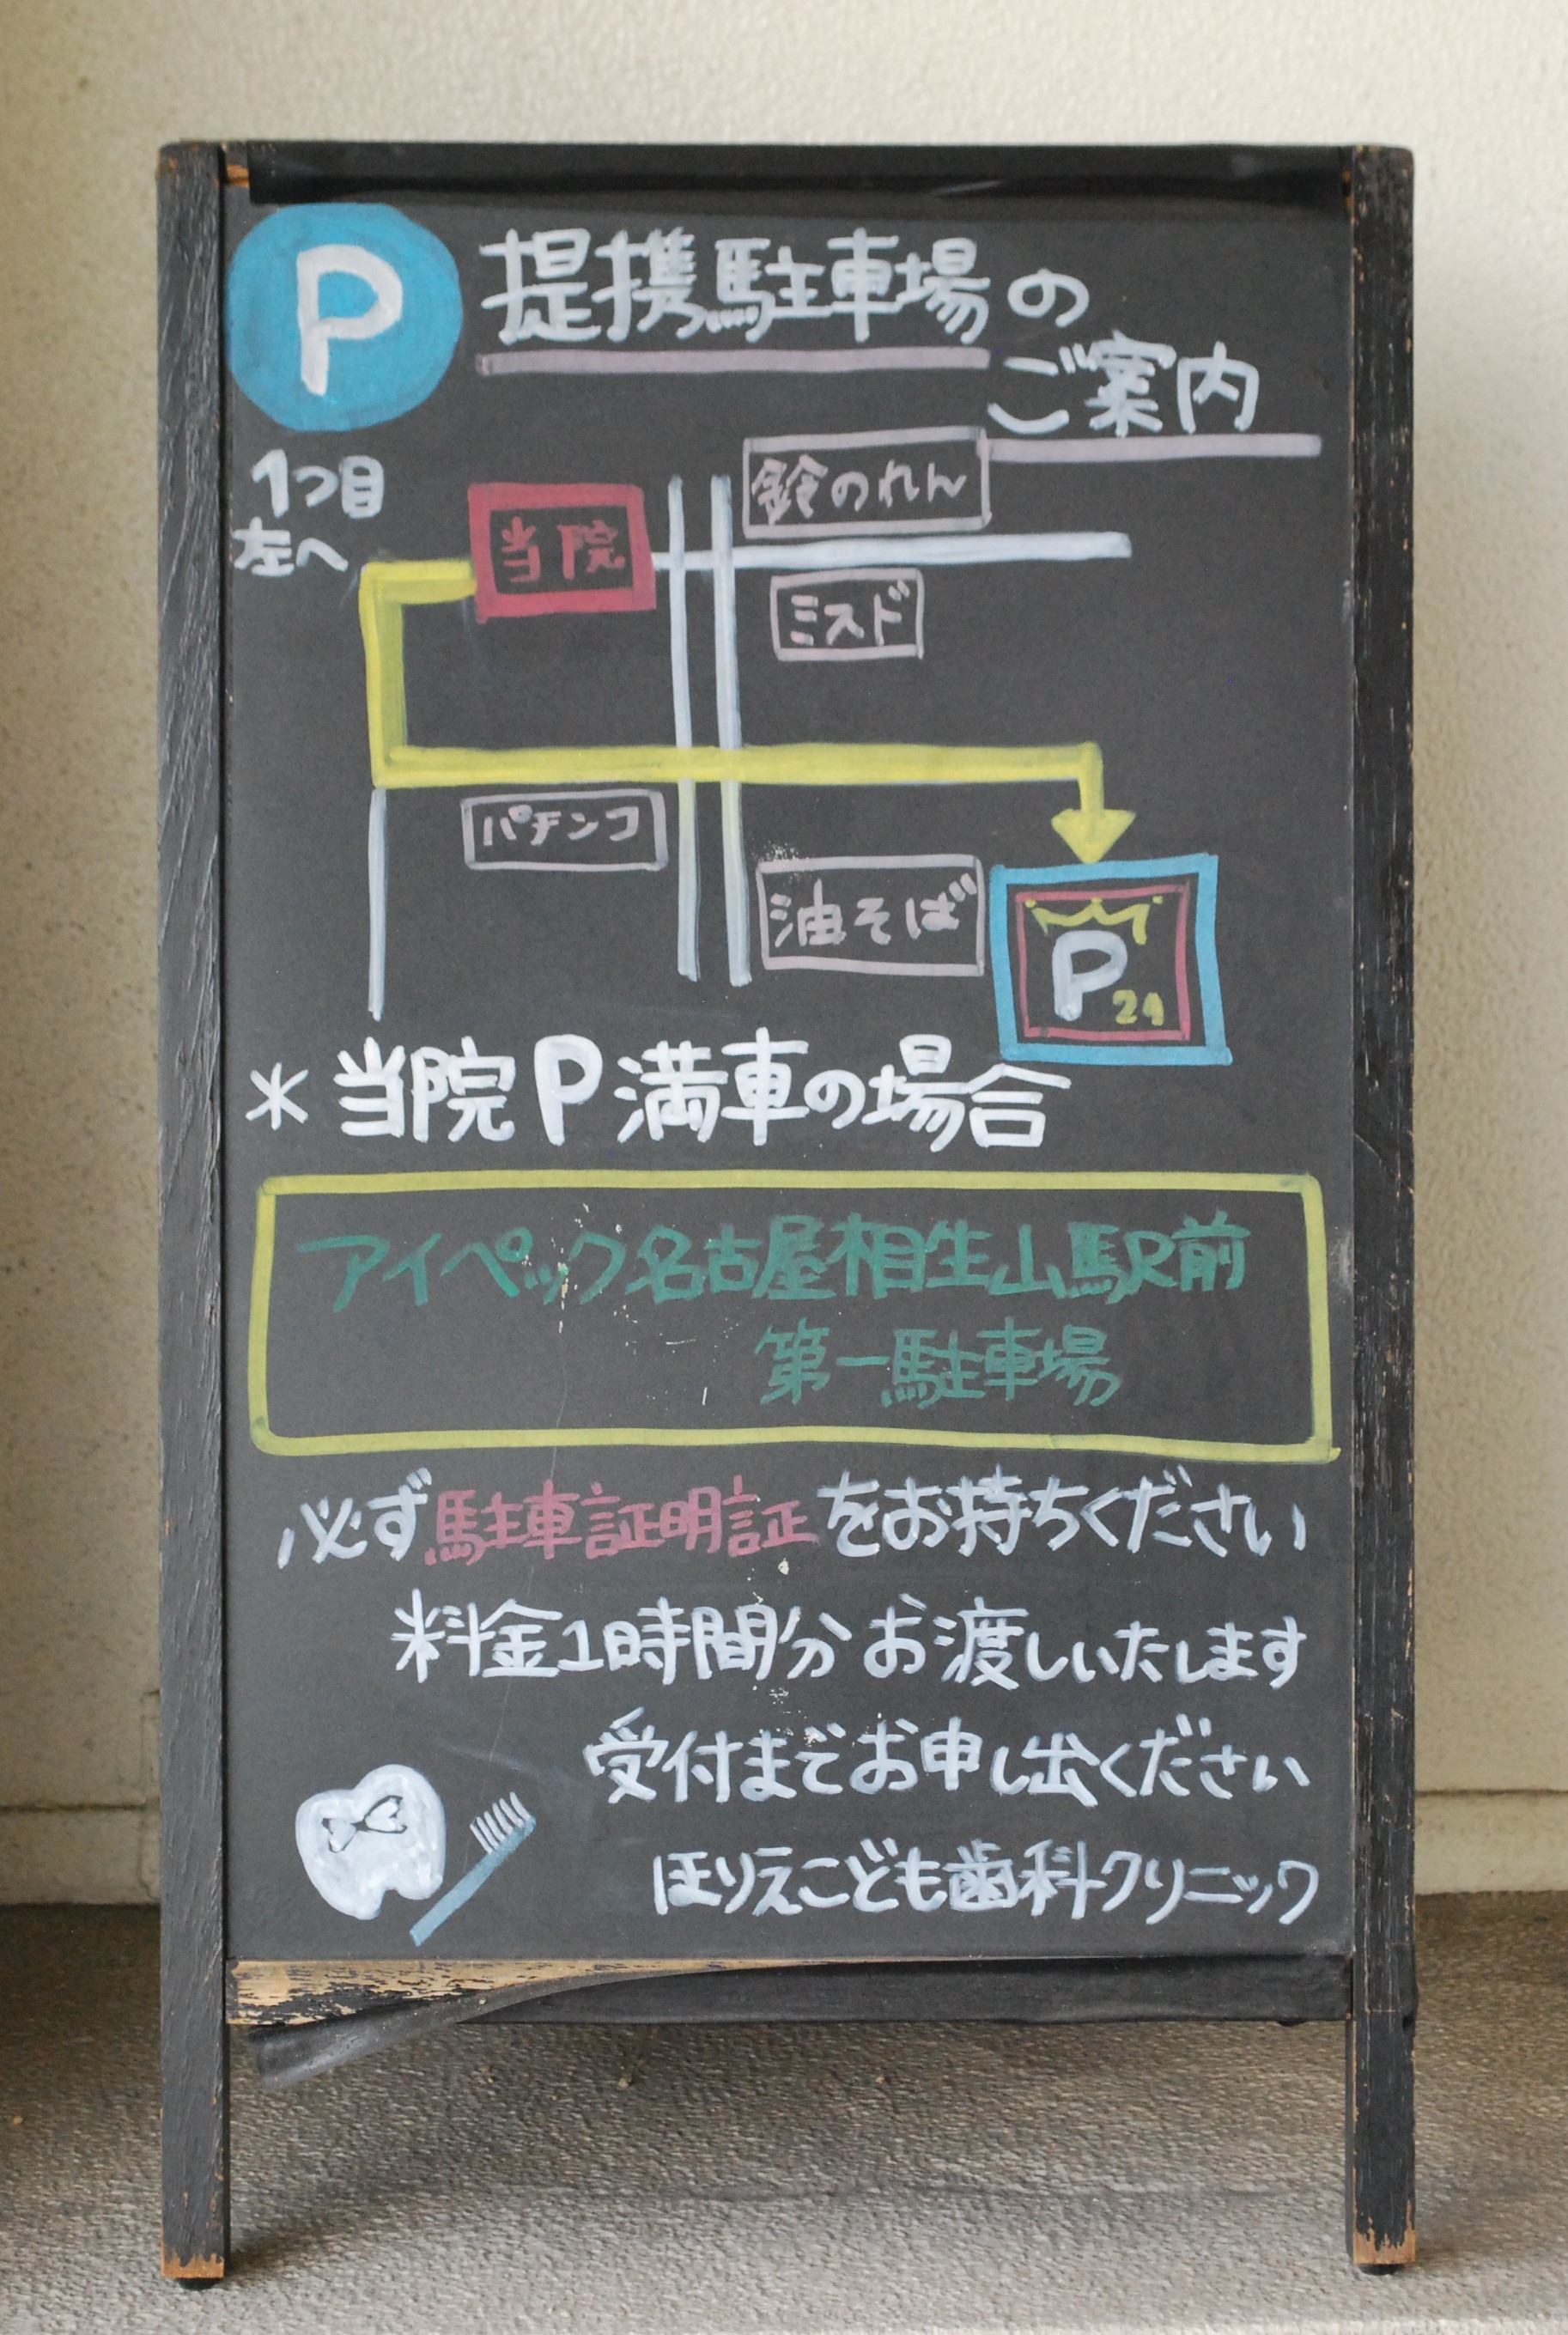 P 提携駐車場の
ご案内
1つ目
左へ
当院
鈴のれん
ミスド
パチンコ
油そば
P
24
＊当院P満車の場合
アイペック名古屋相生山駅前
第一駐車場
必ず駐車証明証をお持ちください
料金1時間分お渡しいたします
受付までお申し出ください
ほりえこども歯科クリニック